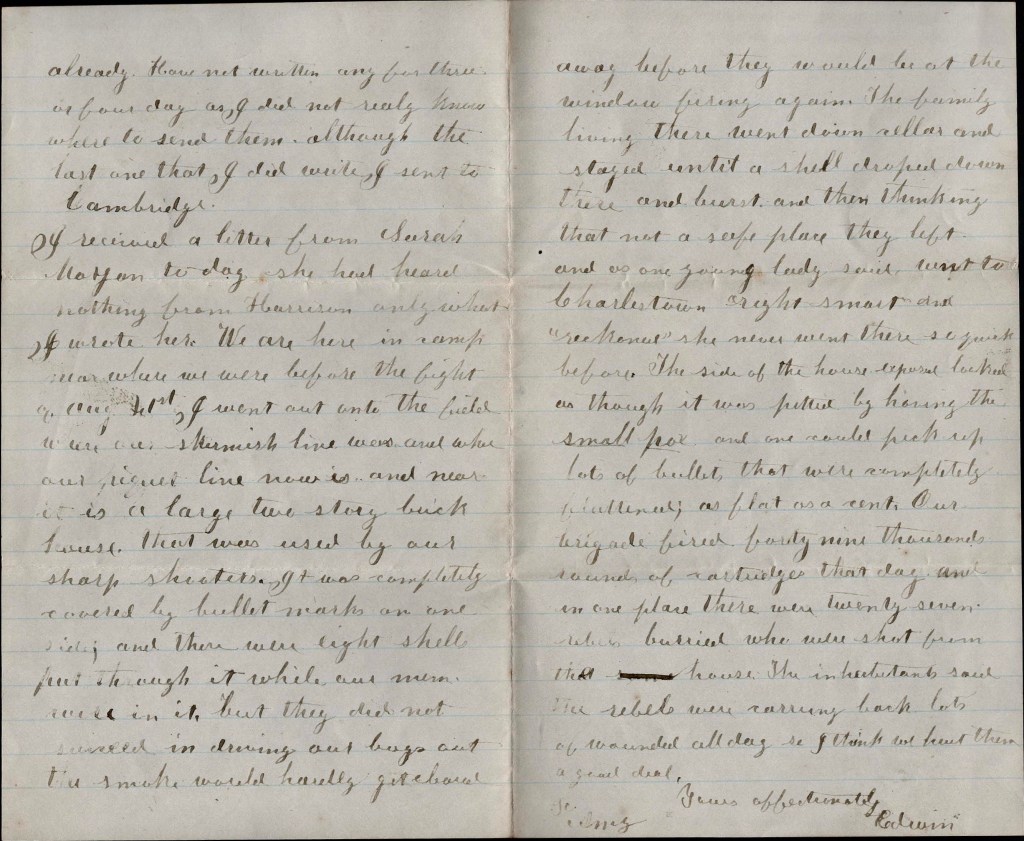 already. Have not written any for three
or four day as I did not realy know
where to send them. although the
last one that I did write I sent to
Cambridge.
I received a letter from Sarah
to day she had heard
nothing from Harrison only what
I wrote her. We are here in camp
near where we were before the fight
Aug 21st, I went out onto the field
where our skirmish line was and where
our picquet line now is. and near
it is a large two story brick
house. that was used by our
sharp shooters. It was completely
covered by bullet marks on one
side; and there were eight shells
put through it while our men
were in it, but they did not
succeed in driving our boys out
the smoke would hardly get cleared
away before they would be at the
window firing again. The family
living there went down cellar and
stayed until a shell droped down
there and burst. and then thinking
that not a safe place they left.
and as one young lady said, went to
Charlestown "right smart" and
"reckoned" she never went there so quick
before. The side of the house exposed looked
as though it was pitted by having the
small pox and one could pick up
lots of bullets that were completely
flattened; as flat as a cent. Our
brigade fired fordy nine thousands
rounds of cartridges that day and
in one place there were twenty seven
rebels burried who were shot from
that house. The inhebetants said
the rebels were carring back lots
of wounded all day so I think we hurt them
a good deal.
Yours affectionately
Edwin